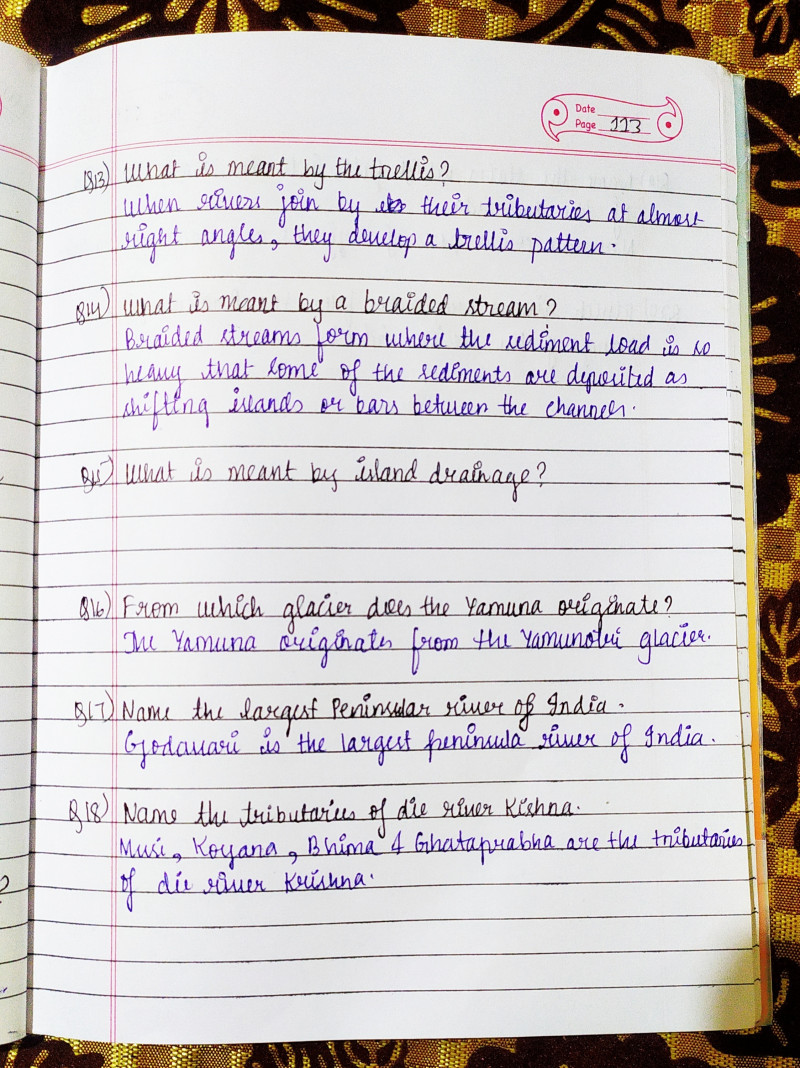 Date
Page 113
Q13) What is meant by the trellis?
When rivers join by their tributaries at almost
right angles, they develop a trellis pattern.
Q14) What is meant by a braided stream?
Braided streams form where the sediment load is so
heavy that some of the sediments are deposited as
shifting islands or bars between the channels.
Q15) What is meant by island drainage?
Q16) From which glacier does the Yamuna originate?
The Yamuna originates from the Yamunotri glacier.
Q17) Name the largest Peninsular river of India.
Godavari is the largest peninsula river of India.
Q18) Name the tributaries of die river Kishna.
Musi, Koyana, Bhima & Ghataprabha are the tributaries
of die river Krishna.